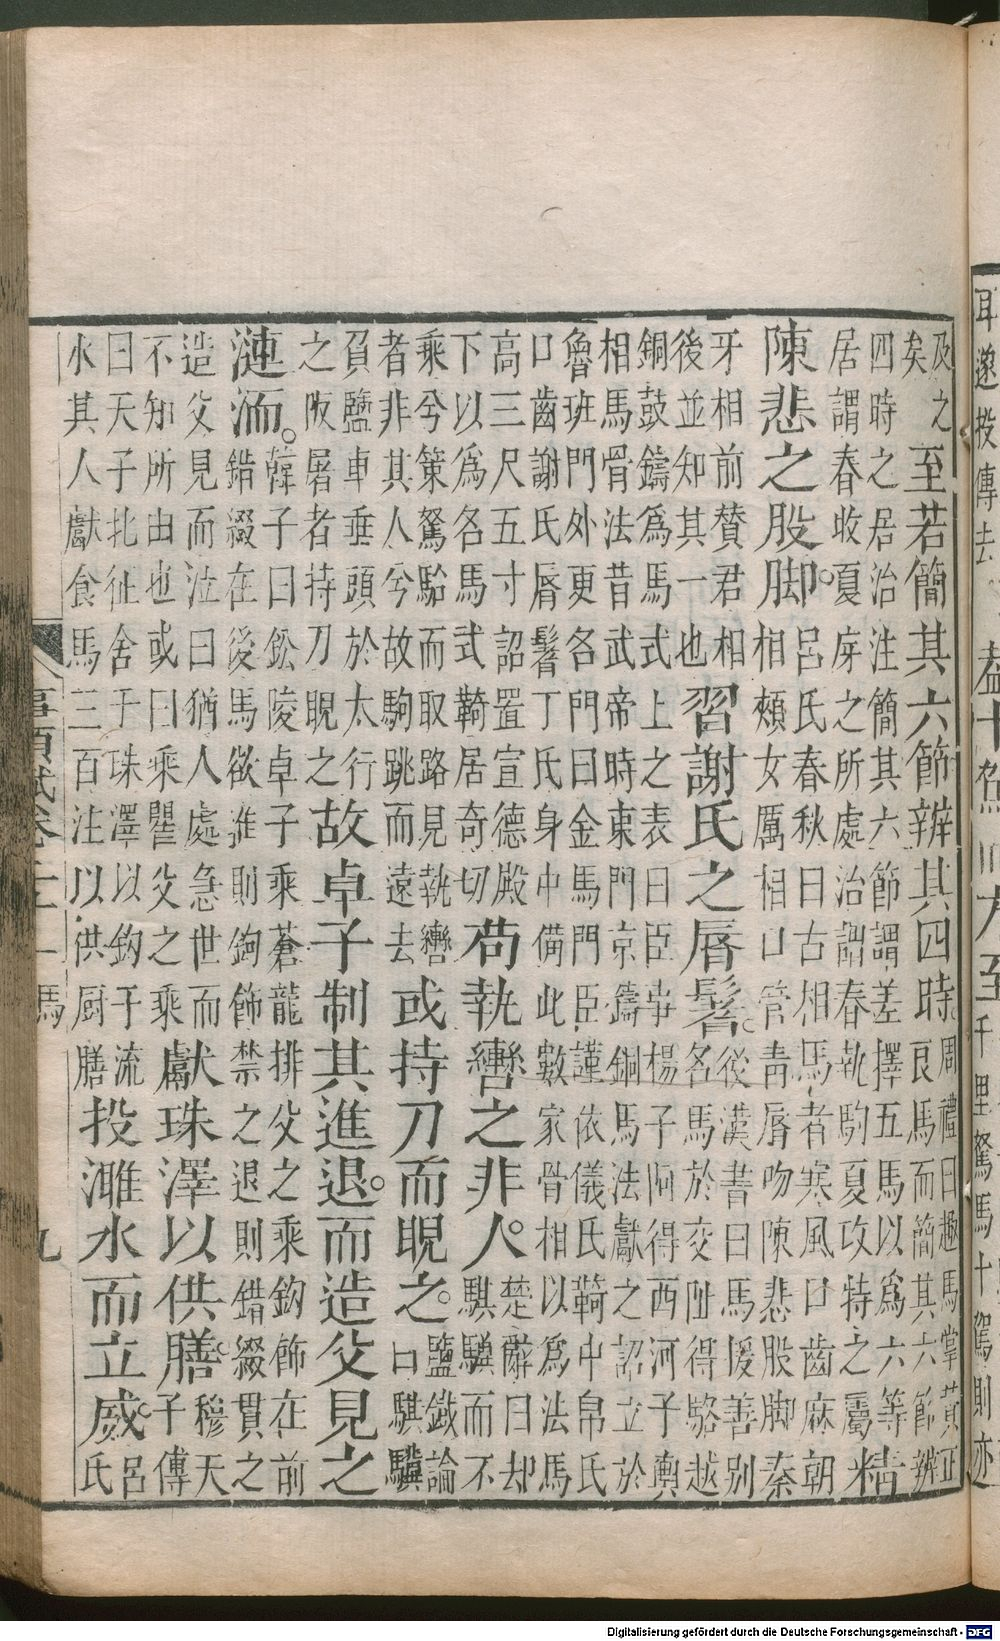 千里駑馬十駕則亦
及之
矣
至若簡其六節辨其四時。
周禮曰趣馬掌賛正
良馬而簡其六節辨
四時之居治注簡其六節謂差擇五馬以爲六等
居謂春收夏庌之所處治謂春執駒夏攻特之屬
精
陳悲之股脚。
呂氏春秋曰古相馬者寒風口齒麻朝
相頰女厲相口管青唇吻陳悲股脚秦
牙相前賛君相
後並知其一也
習謝氏之唇鬐。
後漢書曰馬援善别
名馬於交阯得駱越
銅鼓鑄爲馬式上之表曰臣事楊子阿得西河子輿
相馬骨法昔武帝時東門京鑄銅馬法獻之詔立於
魯班門外更名門曰金馬門臣謹依儀氏䩭中帛氏
口齒謝氏唇鬐丁氏身中備此數家骨相以爲法馬
高三尺五寸詔置宣德殿
下以爲名馬式䩭居奇切
苟執轡之非人。
楚辭曰却
騏驥而不
乘兮策駑駘而取路見執轡
者非其人兮故駒跳而遠去
或持刀而睨之。
鹽鐵論
曰騏驥
負鹽車垂頭於太行
之阪屠者持刀睨之
故卓子制其進退。而造父見之
漣洏。
韓子曰訟陵卓子乘蒼龍排父之乘鈎飾在前
錯綴在後馬欲進則鉤飾禁之退則錯綴貫之
造父見而泣曰猶人處急世而
不知所由也或曰乘瞿父之乘
獻珠澤以供膳。
穆天
子傳
曰天子北征舍于珠澤以鈎于流
水其人獻食馬三百注以供厨膳
投濉水而立威。
呂
氏
事類賦卷二十一 馬 九
Digitalisierung gefördert durch die Deutsche Forschungsgemeinschaft - DFG